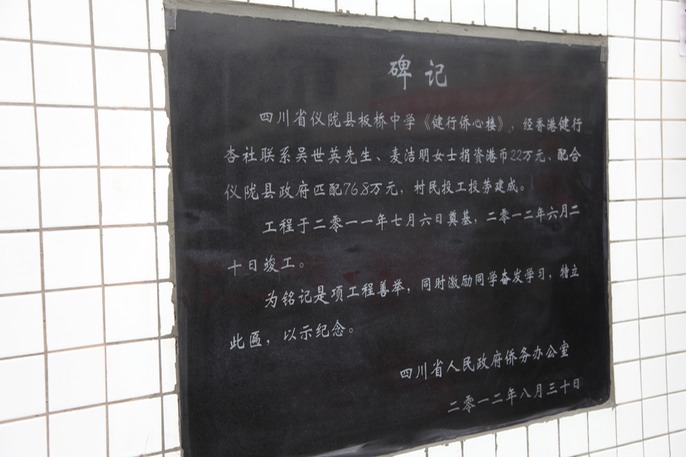 碑记
四川省仪陇县板桥中学《健行侨心楼》，经香港健行
杏社联系吴世英先生、麦洁明女士捐资港币22万元、配合
仪陇县政府匹配76.8万元，村民投工投劳建成。
工程于二零一一年七月六日奠基，二零一二年六月二
十日竣工。
为铭记是项工程善举，同时激励同学奋发学习，特立
此匾，以示纪念。
四川省人民政府侨务办公室
二零一二年八月三十日